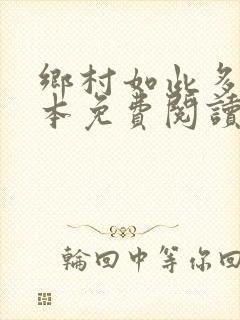 鄉村如此多
本免費閱讀
輪回中等你回